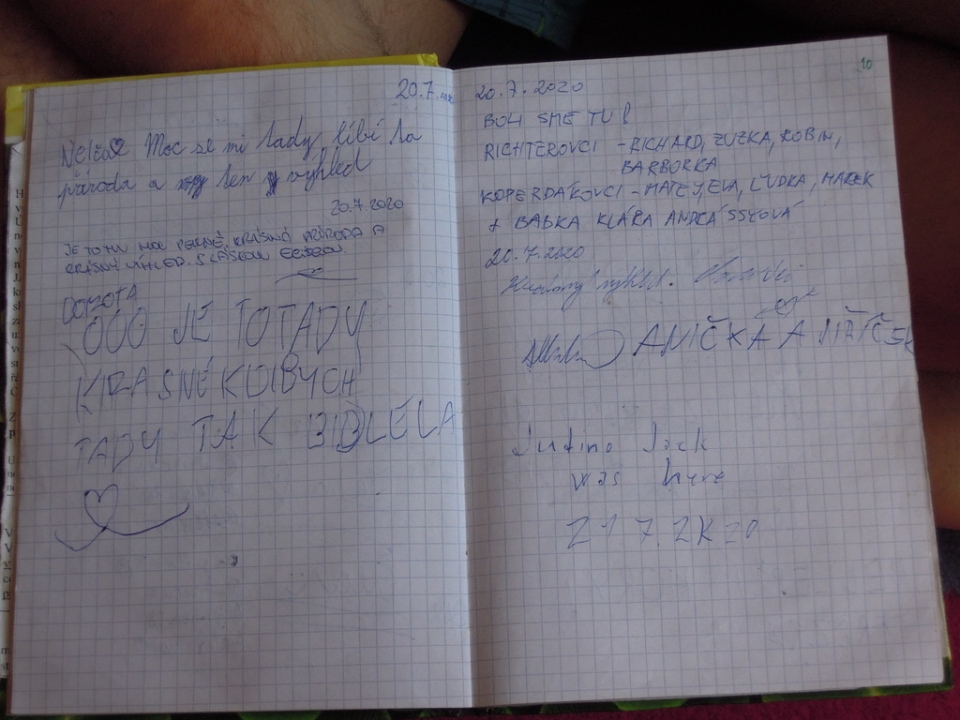 20.7.
Moc se mi tady líbí ta
příroda a ten výhled
20.7.2020
JE TO TU MOC PĚKNÉ, KRÁSNÁ PŘÍRODA A
KRÁSNÝ VÍHLED. S LÁSKOU
DOROTA
OOO JE TO TADY
KRASNÉ KDIBYCH
TADY TAK BIDLELA
10
20.7.2020
BOLI SME TU!
RICHTEROVCI - RICHARD, ZUZKA, ROBIN,
BARBORKA
KOPERDÁKOVCI - MATEJ, ELA, ĽUDKA, MAREK
+ BABKA KLÁRA ANDRÁSSYOVÁ
20.7.2020
výhled.
ANIČKA A JIŘÍČEK
Jack
was here